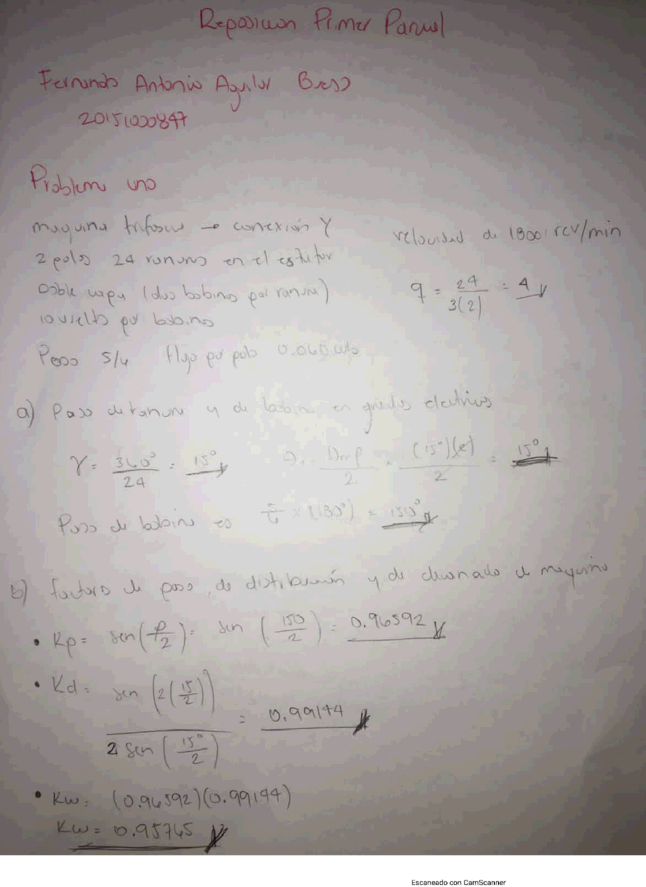 Reposicion Primer Parcial
Fernando Antonio Aguilar
20151000847
Problema uno
maquina trifasica → conexión Y
velocidad de 1800 rev/min
2 polos 24 ranuras en el estator
doble capa (dos bobinas por ranura)
q = 24/3(2) = 4
10 vueltas por bobina
Paso 5/6 flujo por polo
a) Paso de ranura y de bobina en grados electricos
γ = 360°/24 = 15°
(15°)(2)/2 = 15°
Paso de bobina ⇒ 5/6 × (180°) = 150°
b) factores de paso, de distribución y de devanado de maquina
• Kp = sen(ρ/2) = sen (150/2) = 0.96592
• Kd = sen (2(15/2)) / 2 sen (15°/2) = 0.99144
• Kw = (0.96592)(0.99144)
Kw = 0.95765
Escaneado con CamScanner